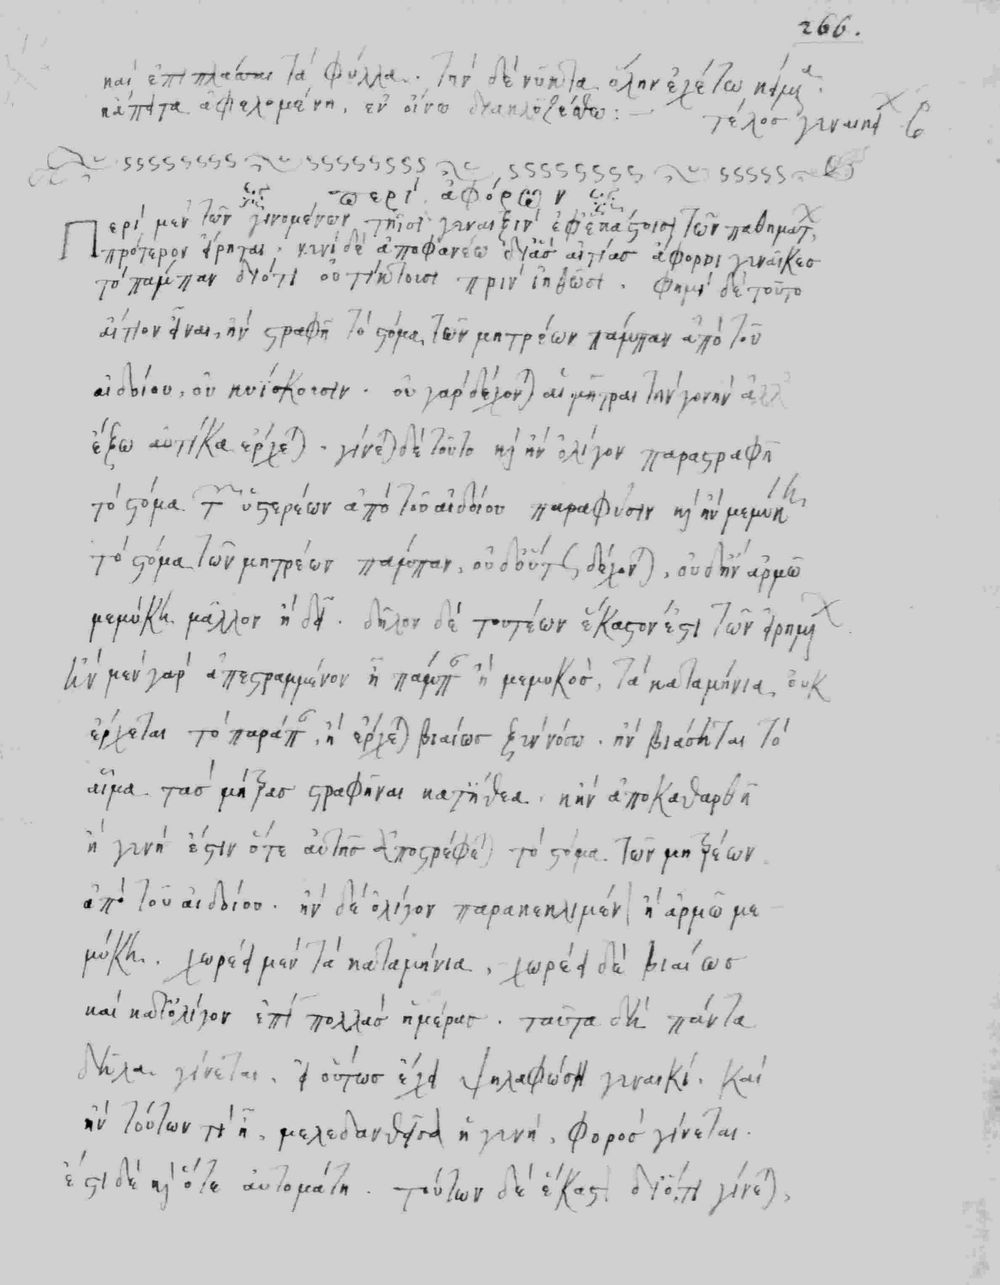 266.
καὶ ἐπιπλάσαι τὰ φύλλα. τὴν δὲ νύκτα ὅλην ἐχέτω
κἄπειτα ἀφελομένη, ἐν οἴνῳ διακλυζέσθω: — τέλος γυναικ
περὶ ἀφόρων
Περὶ μὲν τῶν γινομένων τῇσι γυναιξὶν ἐφ' ἑκάστοισι τῶν παθημάτ
πρότερον εἴρηται. νυνὶ δὲ ἀποφανέω δι' ἃς αἰτίας ἄφοροι γυναῖκες
τὸ πάμπαν διότι οὐ τίκτουσι πρὶν ἰηθῶσι. φημὶ δὲ τοῦτο
αἴτιον εἶναι, ἢν στραφῇ τὸ στόμα τῶν μητρέων πάμπαν ἀπὸ τοῦ
αἰδοίου, οὐ κυίσκουσιν. οὐ γὰρ δέχονται αἱ μῆτραι τὴν γονὴν ἀλλ'
ἔξω αὐτίκα ἔρχεται. γίνεται δὲ τοῦτο καὶ ἢν ὀλίγον παραστραφῇ
τὸ στόμα τῶν ὑστερέων ἀπὸ τοῦ αἰδοίου παρὰ φύσιν καὶ ἢν μεμύκῃ
τὸ στόμα τῶν μητρέων πάμπαν, οὐδ' οὕτως δέχονται, οὐδ' ἢν ἁρμῷ
μεμύκῃ μᾶλλον ἢ δεῖ. δῆλον δὲ τουτέων ἕκαστον ἐστὶ τῶν εἰρημ
ἢν μὲν γὰρ ἀπεστραμμένον ᾖ πάμπ ἢ μεμυκός, τὰ καταμήνια οὐκ
ἔρχεται τὸ παράπ, ἢ ἔρχεται βιαίως ξὺν νόσῳ. ἢν βιάσηται τὸ
αἷμα τὰς μήτρας στραφῆναι κατ' ἤθεα, κἢν ἀποκαθαρθῇ
ἡ γυνὴ ἔστιν ὅτε αὐτῆς ἀποστρέφεται τὸ στόμα τῶν μητρέων
ἀπὸ τοῦ αἰδοίου. ἢν δὲ ὀλίγον παρακεκλιμέν ἢ ἁρμῷ με
μύκῃ, χωρέει μὲν τὰ καταμήνια, χωρέει δὲ βιαίως
καὶ κατ' ὀλίγον ἐπὶ πολλὰς ἡμέρας. ταῦτα δὴ πάντα
δῆλα γίνεται, εἰ οὕτως ἔχει ψηλαφώσῃ γυναικί. καὶ
ἢν τούτων τι ᾖ, μελεδανθεῖσα ἡ γυνή, φορὸς γίνεται.
ἔστι δὲ καὶ ὅτε αὐτομάτη. τούτων δὲ ἕκαστ διότι γίνεται,